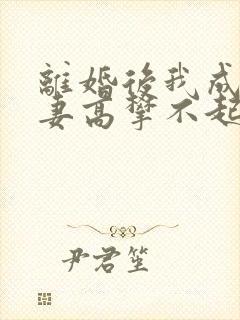 離婚後我成
妻高攀不起
尹君笙